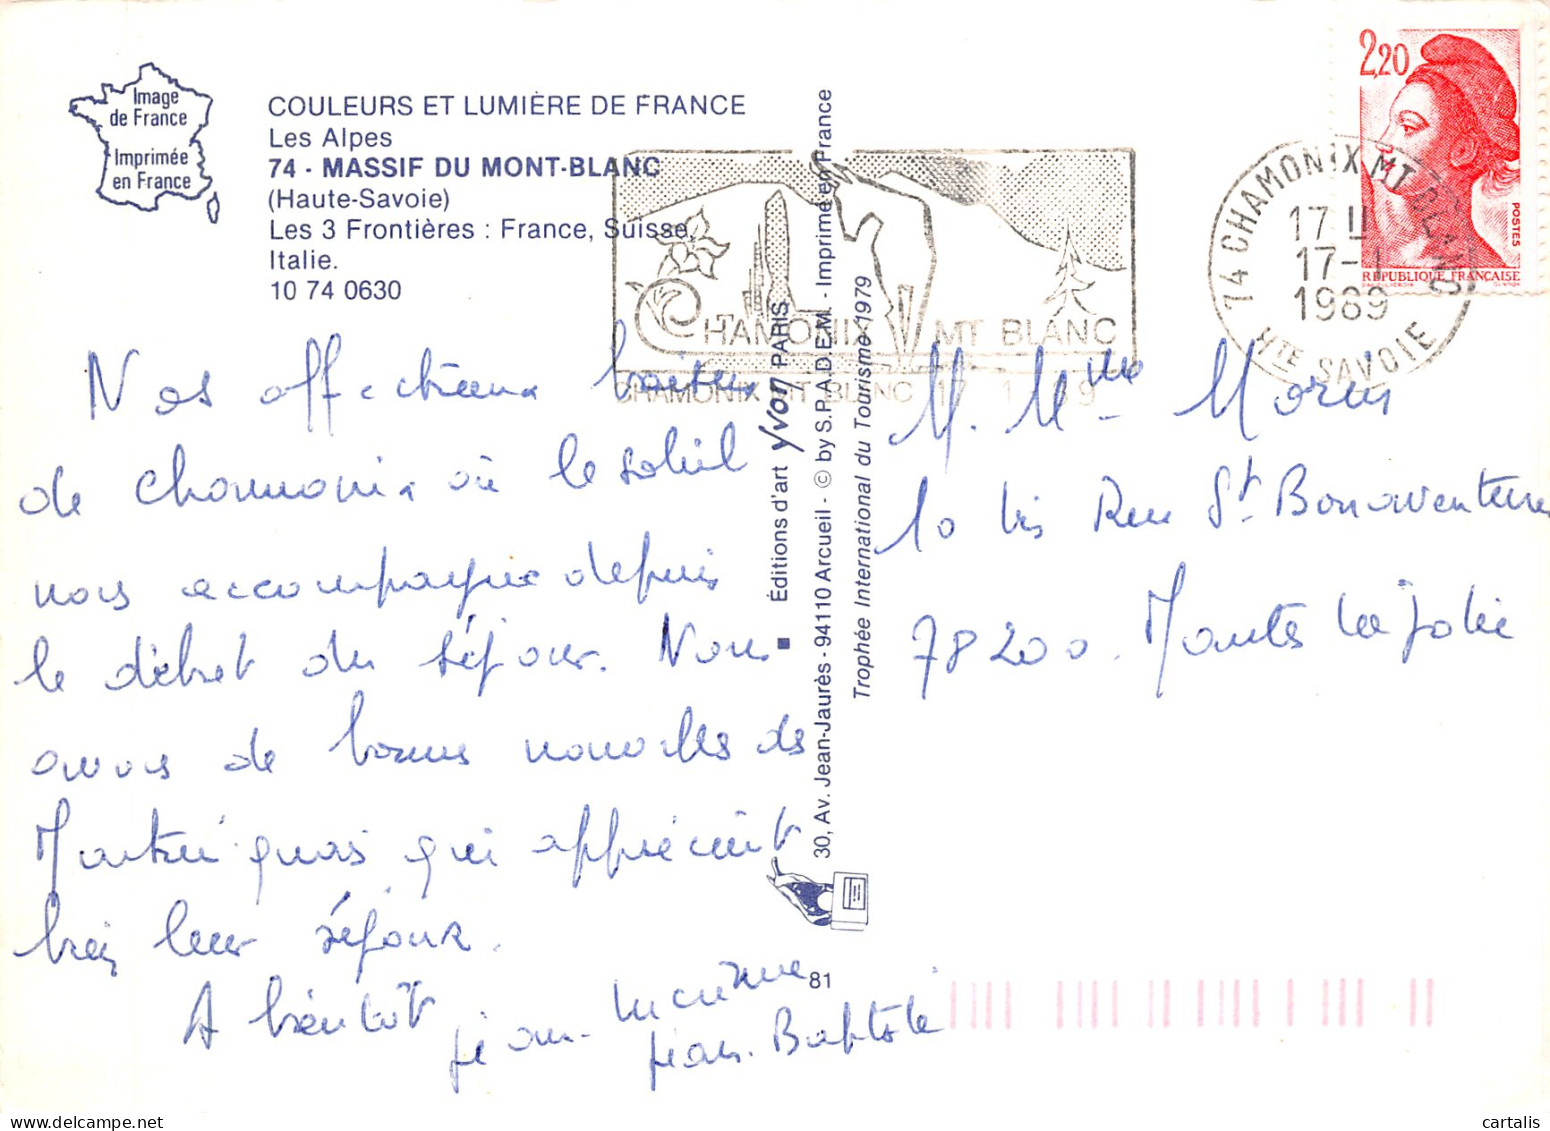 Image
de France
Imprimée
en France
COULEURS ET LUMIÈRE DE FRANCE
Les Alpes
74 - MASSIF DU MONT-BLANC
(Haute-Savoie)
Les 3 Frontières : France, Suisse,
Italie.
10 74 0630
CHAMONIX MT BLANC
CHAMONIX MT BLANC 17 1 89
2,20
POSTES
REPUBLIQUE FRANÇAISE
74 CHAMONIX MT BLANC
17 H
17-1
1989
HTE SAVOIE
Nos affectueux baisers
de Chamonix où le soleil
nous accompagne depuis
le début du séjour. Nous
avons de bonnes nouvelles de
qui apprécient
bien leur séjour.
A bientôt
Jean-
Jean-Baptiste
Éditions d'art Yvon PARIS
30, Av. Jean-Jaurès - 94110 Arcueil - © by S.P.A.D.E.M. - Imprimé en France
Trophée International du Tourisme 1979
81
M. Mme
10 bis Rue St Bonaventure
78200. Mantes la Jolie
cartalis